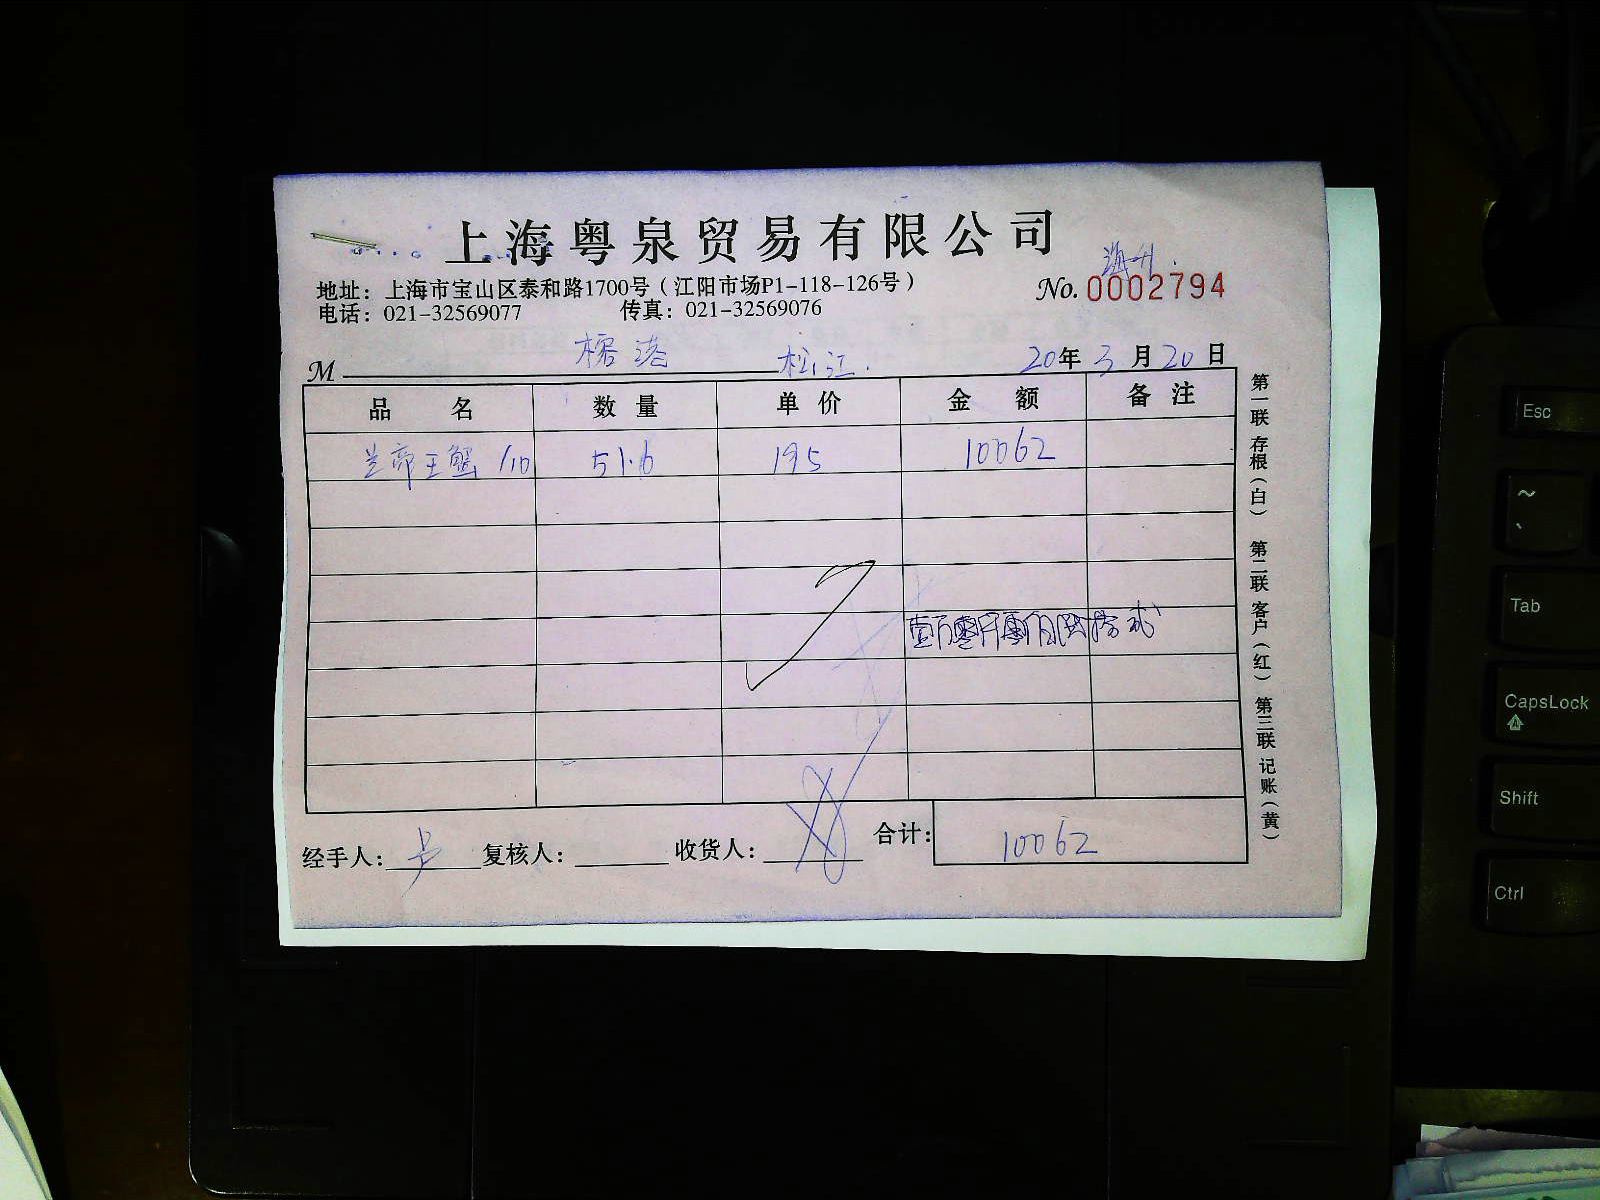 上海粤泉贸易有限公司
地址：上海市宝山区泰和路1700号（江阳市场P1-118-126号）
海升
No. 0002794
电话：021-32569077 传真：021-32569076
M 榕港 松江. 20年3月20日
品名 数量 单价 金额 备注
兰帝王蟹 /10 51.6 195 10062
壹万零仟零佰陆拾贰
经手人： 复核人： 收货人： 合计： 10062
第一联 存根（白） 第二联 客户（红） 第三联 记账（黄）
Esc
~
`
Tab
CapsLock
Shift
Ctrl